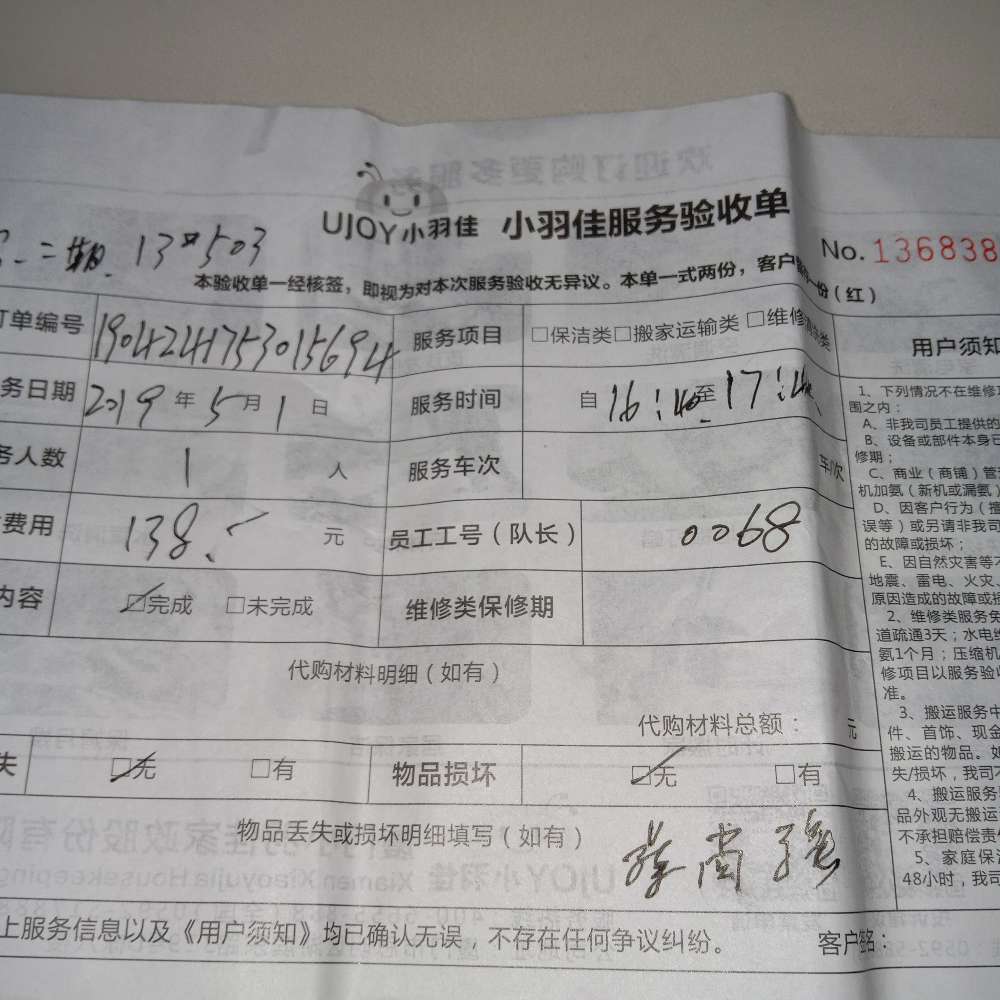 UJOY小羽佳 小羽佳服务验收单
No.136838
二期 13#503
本验收单一经核签，即视为对本次服务验收无异议。本单一式两份，客户 一份（红）
订单编号 1904241753015694 服务项目 □保洁类□搬家运输类 □维修 类
务日期 2019年5月1日 服务时间 自16:40至17:40
务人数 1人 服务车次 车/次
费用 138.元 员工工号（队长） 0068
内容 ☑完成 □未完成 维修类保修期
代购材料明细（如有）
代购材料总额： 元
失 ☑无 □有 物品损坏 ☑无 □有
物品丢失或损坏明细填写（如有）
上服务信息以及《用户须知》均已确认无误，不存在任何争议纠纷。 客户签名：
用户须知
1、下列情况不在维修
围之内：
A、非我司员工提供的
B、设备或部件本身已
修期；
C、商业（商铺）管
机加氨（新机或漏氨）
D、因客户行为（擅
误等）或另请非我司
的故障或损坏；
E、因自然灾害等不
地震、雷电、火灾、
原因造成的故障或损
2、维修类服务免
道疏通3天；水电维
氨1个月；压缩机
修项目以服务验收
准。
3、搬运服务中
件、首饰、现金
搬运的物品。如
失/损坏，我司不
4、搬运服务
品外观无搬运
不承担赔偿责
5、家庭保洁
48小时，我司